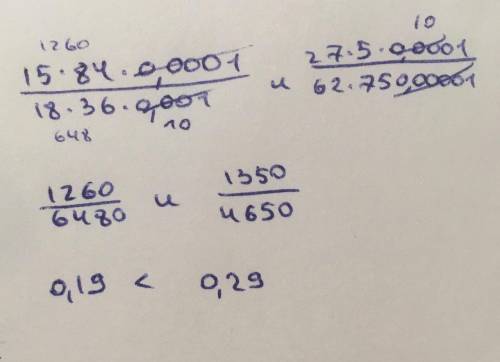 10
1260
15·84·0,0001 / 18·36·0,001 и 27·5·0,0001 / 62·750,00001
648 10
1260/6480 и 1350/4650
0,19 < 0,29